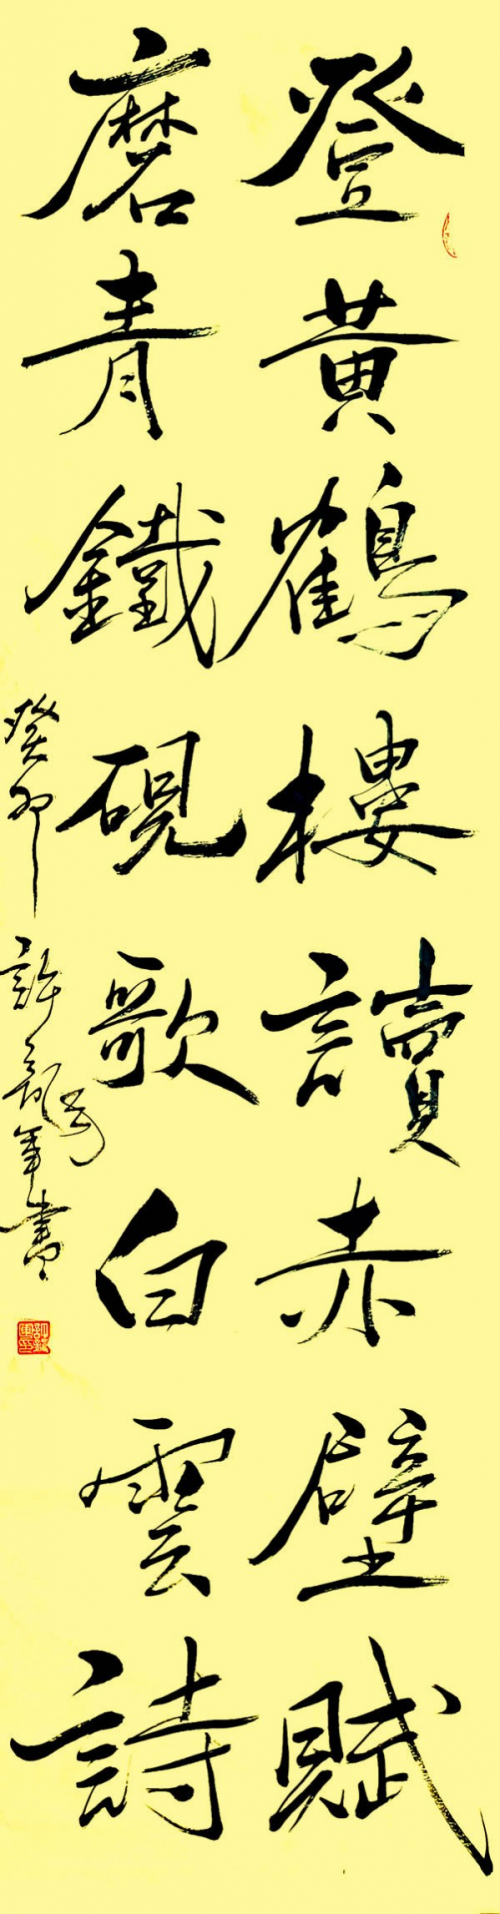 登黃鶴樓讀赤壁賦
磨青鐵硯歌白雲詩
癸卯 許龍年書